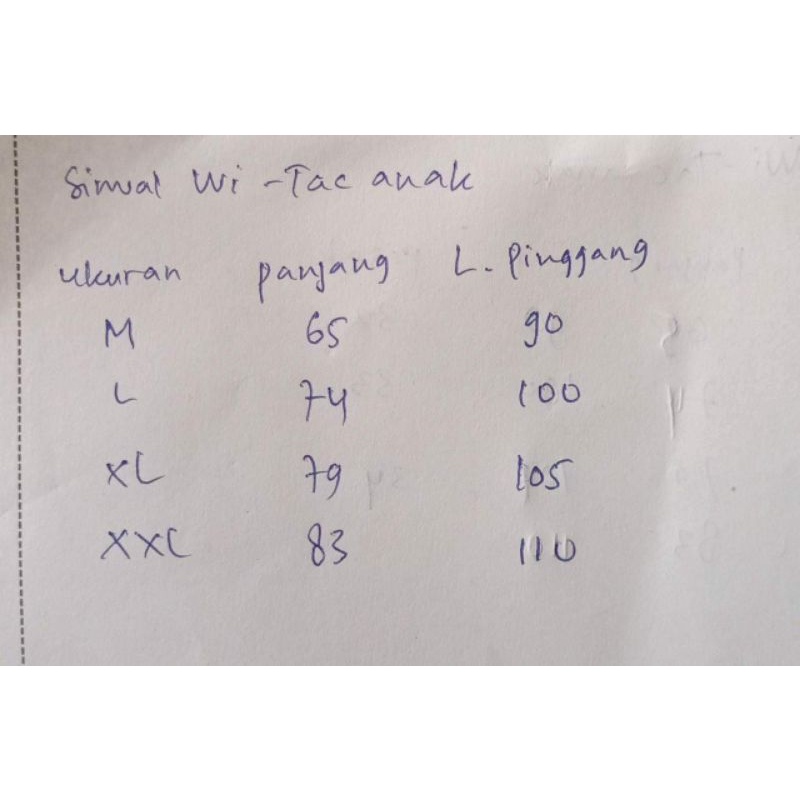 Sirwal Wi-Tac anak
ukuran panjang L. Pinggang
M 65 90
L 74 100
XL 79 105
XXL 83 110